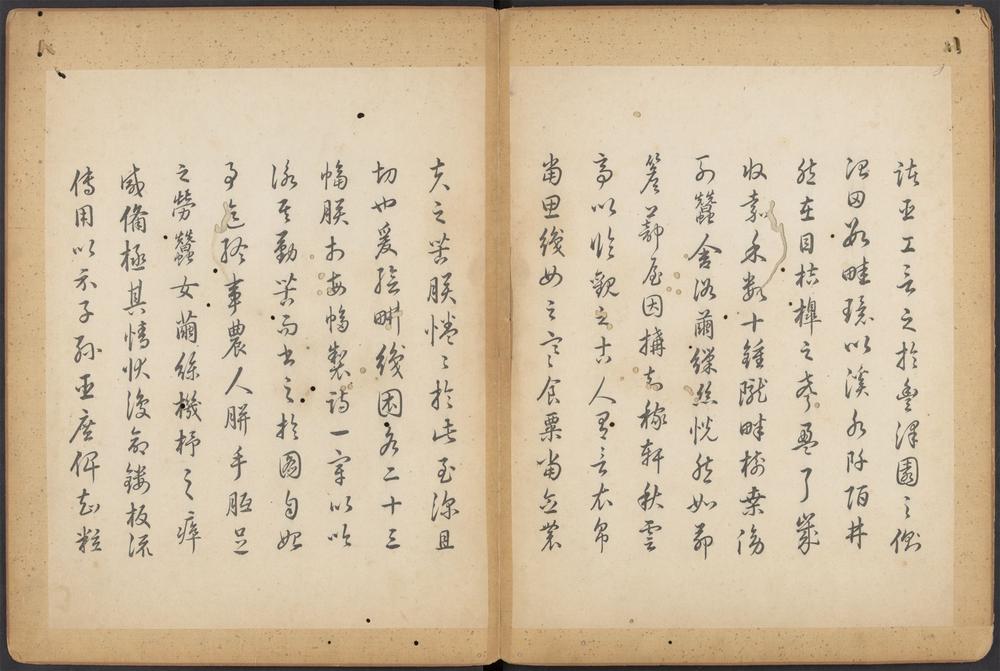 諸臣工言之於豐澤園之側
治田數畦環以溪水阡陌井
然在目桔槔之聲盈耳歲
收嘉禾數十鍾隴畔樹桑傍
列蠶舍浴繭繅絲恍然如茆
簷蔀屋因構知稼軒秋雲
亭以臨觀之古人有言衣帛
當思織女之寒食粟當念農
夫之苦朕惓〻於此至深且
切也爰繪畊織圖各二十三
幅朕於每幅製詩一章以吟
詠其勤苦而書之於圖自始
事迄終事農人胼手胝足
之勞蠶女繭絲機杼之瘁
咸備極其情狀復命鏤板流
傳用以示子孫臣庶俾知粒